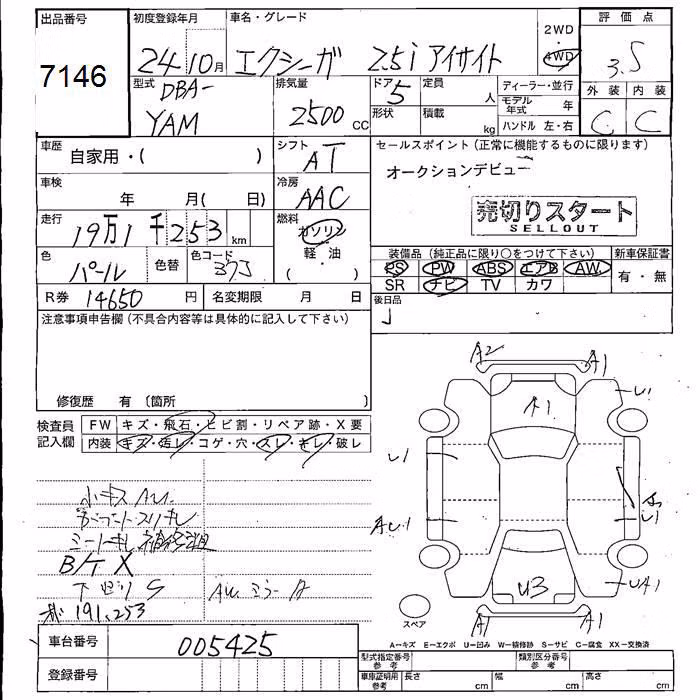 出品番号 初度登録年月 車名・グレード 2WD 評価点
7146 24 10月 エクシーガ 2.5i アイサイト 4WD 3.5
型式 DBA- 排気量 ドア 5 定員 人 ディーラー・並行 外装 内装
YAM 2500 CC 形状 積載 kg モデル年式 年 C C
ハンドル 左・右
車歴 自家用・( ) シフト AT セールスポイント(正常に機能するものに限ります)
オークションデビュー
車検 年 月( 日) 冷房 AAC
売切りスタート
SELLOUT
走行 19万1千253 km 燃料 ガソリン
軽・油
( ・ )
色 パール 色替 色コード 37J
装備品(純正品に限り○をつけて下さい) 新車保証書
PS PW ABS エアB AW 有・無
SR ナビ TV カワ
R券 14650 円 名変期限 月 日 後日品
注意事項申告欄(不具合内容等は具体的に記入して下さい)
修復歴 有(箇所 )
検査員記入欄 FW キズ・飛石・ヒビ割・リペア跡・X要
内装 キズ・汚レ・コゲ・穴・スレ・キレ・破レ
A2 A1
A1 U1
U1
AU1 U1
U3 UA1
A1 A1
スペア
小キズ AU.
B/T X
下回り S AU ミラー A
191,253
A−キズ E−エクボ U−凹み W−補修跡 S−サビ C−腐食 XX−交換済
車台番号 005425
型式指定番号 参考 類別区分番号 参考
登録番号 車庫証明用 参考 長さ cm 幅 cm 高さ cm